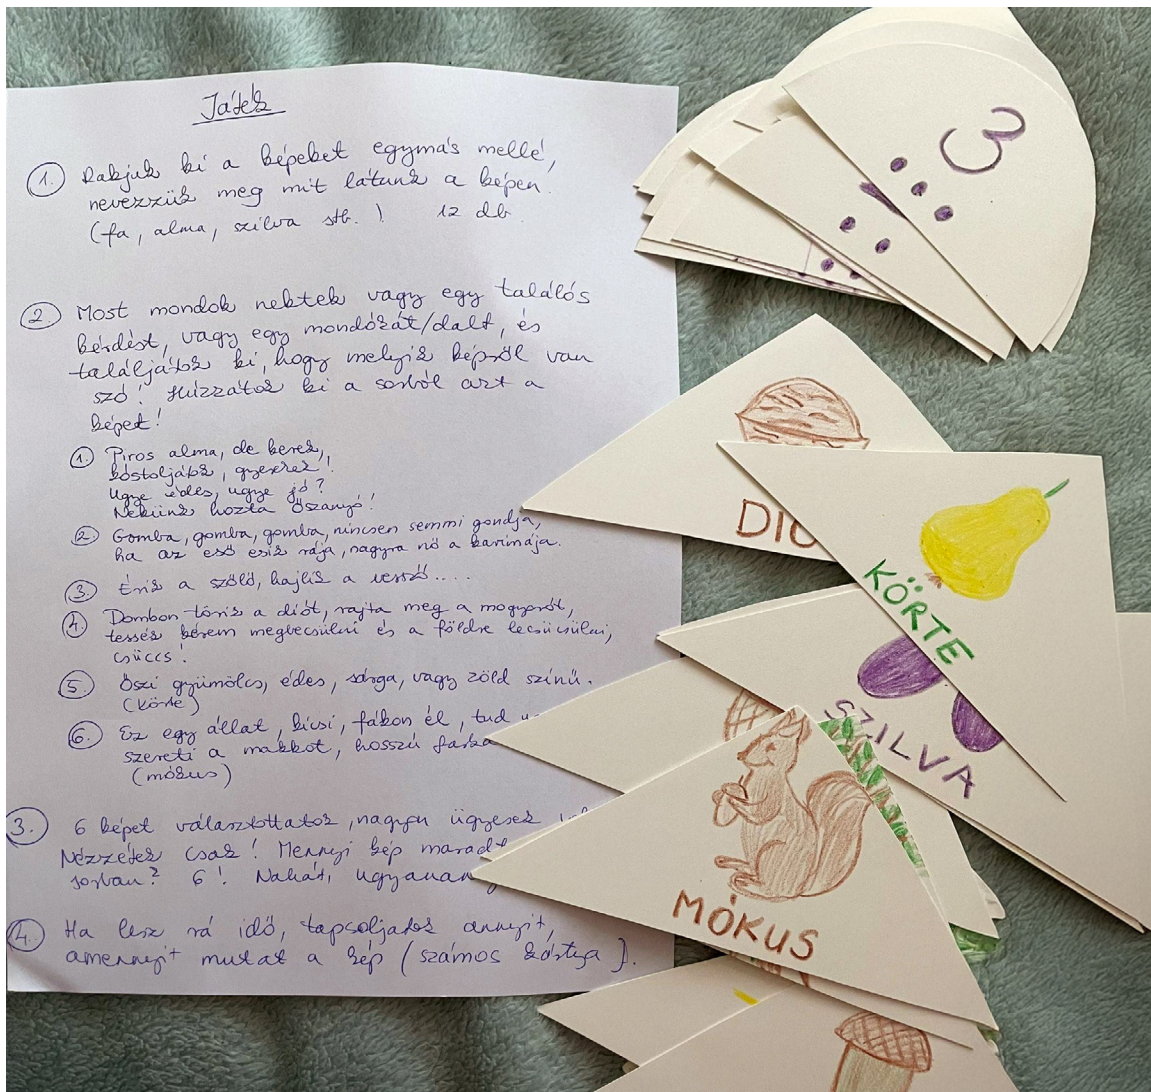 Játék
1. Rakjuk ki a képeket egymás mellé,
nevezzük meg mit látunk a képen.
(fa, alma, szilva stb.) 12 db.
2 Most mondok nektek vagy egy találós
kérdést, vagy egy mondókát/dalt, és
találjátok ki, hogy melyik képről van
szó! Húzzátok ki a sorból azt a
képet!
1. Piros alma, de kerek,
kóstoljátok, gyerekek!
Ugye édes, ugye jó?
Nekünk hozta Őszanyó!
2. Gomba, gomba, gomba, nincsen semmi gondja,
ha az eső esik rája, nagyra nő a karimája.
3. Érik a szőlő, hajlik a vessző....
4. Dombon törik a diót, rajta meg a mogyorót,
tessék kérem megbecsülni és a földre lecsücsülni,
csüccs!
5 Őszi gyümölcs, édes, sárga, vagy zöld színű.
(körte)
6. Ez egy állat, kicsi, fákon él, tud
szereti a makkot, hosszú
(mókus)
3. 6 képet választottatok, nagyon ügyesek
Nézzétek csak! Mennyi kép maradt
sorban? 6! Nahát,
4. Ha lesz rá idő, tapsoljatok annyit,
amennyit mutat a kép (számos kártya).
3
DIÓ
KÖRTE
SZILVA
MÓKUS